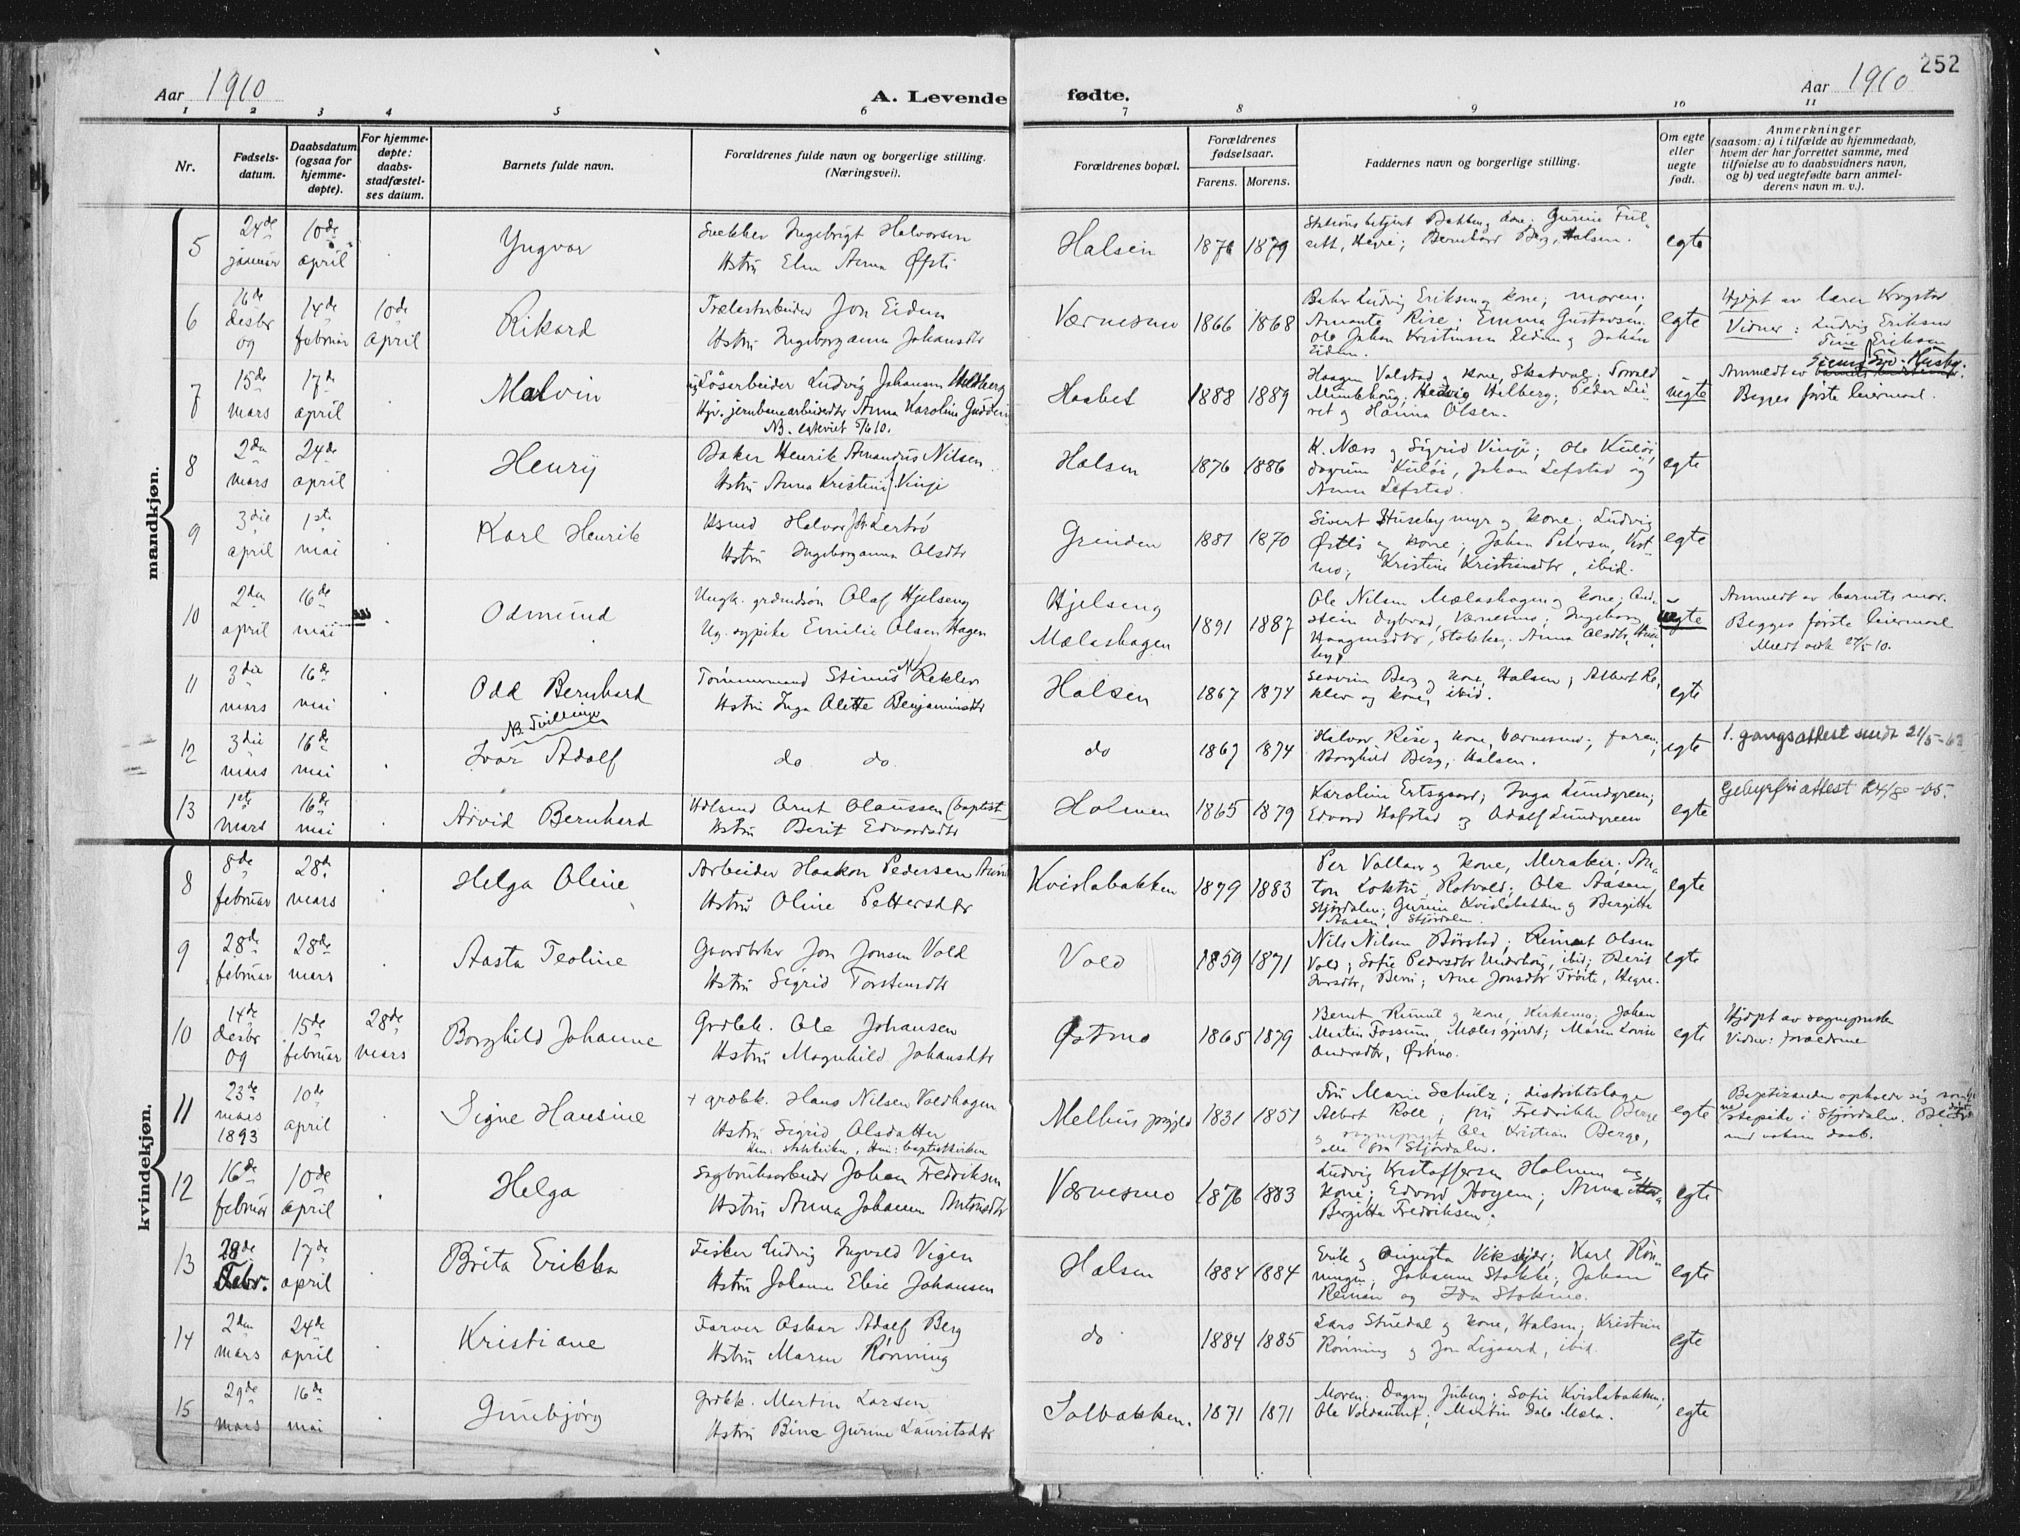 252
Aar 1910
A. Levende fødte.
Aar 1910
1 2 3 4 5 6 7 8 9 10 11
Nr.
Fødsels-
datum.
Daabsdatum
(ogsaa for
hjemme-
døpte).
For hjemme-
døpte:
daabs-
stadfæstel-
ses datum.
Barnets fulde navn.
Forældrenes fulde navn og borgerlige stilling.
(Næringsvei).
Forældrenes bopæl.
Forældrenes
fødselsaar.
Farens. Morens.
Faddernes navn og borgerlige stilling.
Om egte
eller
uegte
født.
Anmerkninger
(saasom: a) i tilfælde av hjemmedaab,
hvem der har forrettet samme, med
tilføielse av to daabsvidners navn,
og b) ved uegtefødte barn anmel-
derens navn m. v.).
mandkjøn.
5
24de januar
10de april
Yngvar
Snekker Ingebrigt Halvorsen
Hstru Elen Anna Øfsti
Halsen
1876 1879
egte
6
16de desbr 09
14de februar
10de april
Rikard
Jon Eidum
Hstru Ingeborganna Johansdtr
Værnesmo
1866 1868
Baker Ludvig Eriksen og kone; moren;
Amanta Rise; Emma Gustavsen,
Ole Johan Kristiansen Eidum og Johan
Eidum.
egte
Hjdpt av lærer Krogstad
Vidner: Ludvig Eriksen
Tine Eriksen
7
15de mars
17de april
Malvin
Løsarbeider Ludvig Johansen Hilberg
Anna Karoline
Haabet
1888 1889
Haagen Valstad og kone, Skatval; Torvald
Hedvig Hilberg; Peder
og Hanna Olsen.
uegte
Anmeldt av
Begges første leiermaal.
8
2den mars
24de april
Henry
Baker Henrik Amandus Nilsen
Hstru Anna Kristine Vinje
Halsen
1876 1886
K. Næss og Sigrid Vinje; Ole Kuløi,
Dagrun Kuløi, Johan Lefstad og
Anna Lefstad.
egte
9
3die april
1ste mai
Karl Henrik
Hsmd Halvor Lertrø
Hstru Ingeborganna Olsdtr
Grinden
1881 1870
Sivert Husebymyr og kone; Ludvig
Østli og kone; Johan Petersen, Øst-
mo; Kristine Kristiansdtr, ibid.
egte
10
2den april
16de mai
Odmund
Ungk. grdmdsøn Olaf Hjelseng
Ug. sypike Emilie Olsen Hagen
Hjelseng
Mælashagen
1891 1887
Ole Nilsen Mælashagen og kone; Aud-
stein Dybvad, Værnesmo; Ingeborg
Haagensdtr, Stokke; Anna Olsdtr, Huse-
by.
uegte
Anmeldt av barnets mor.
Begges første leiermaal
11
3die mars
16de mai
Odd Bernhard
NB. Tvilling
Tømmermand Stinus M Rekler
Hstru Inga Olette Benjaminsdtr
Halsen
1867 1874
Severin Berg og kone, Halsen; Albert Re-
kler og kone, ibid.
egte
12
3die mars
16de mai
Ivar Adolf
do do.
do
1867 1874
Halvor Rise og kone, Værnesmo; faren;
Borghild Berg, Halsen.
egte
1. gangsattest sendt 21/5-63
13
1ste mars
16de mai
Arvid Bernhard
Arnt Olaussen (baptist
Hstru Berit Edvardsdtr
Holmen
1865 1879
Karoline Ertsgaard; Inga Lundgreen;
Edvard Hofstad og Adolf Lundgreen
egte
Gebyrfri attest 24/8-05.
kvindekjøn.
8
8de februar
28de mars
Helga Oline
Arbeider Haakon Pedersen
Hstru Oline Pettersdtr
Kvislabakken
1879 1883
Per Vollan og kone, Meraker; An-
ton Rotvold; Ole Aasen,
Stjørdalen; Gurine Kvislabakken og Bergitte
Aasen, Stjørdalen.
egte
9
28de februar
28de mars
Aasta Teoline
Gaardbrker Jon Jonsen Vold
Hstru Sigrid Torstensdtr
Vold
1859 1871
Nils Nilsen Børstad; Olsen
Vold; Sofie Pedersdtr ibid; Berit
Ane Jonsdtr Trøite, Hegre.
egte
10
14de desbr 09
15de februar
28de mars
Borghild Johanne
Grdbk. Ole Johansen
Hstru Magnhild Johansdtr
Østmo
1865 1879
Bernt og kone, Kirkemo; Johan
Martin Fossum, Mælesgjerdet; Maren Lovise
Andersdtr, Østmo.
egte
Hjdpt av sognepresten
Vidner: forældrene
11
23de mars 1893
10de april
Signe Hansine
+ grdbk. Hans Nilsen Voldhagen
Hstru Sigrid Olsdatter
Melhus prgjeld
1831 1851
Fru Marie Schulz; distriktslæge
Albert Roll; fru Fredrikke Berge
og sogneprest Ole Kristian Berge,
alle fra Stjørdalen.
egte
Baptizanden opholder sig som
i Stjørdalen. Blev døpt
ved voksen daab.
12
16de februar
10de april
Helga
Sagbruksarbeider Johan Fredriksen
Hstru Anna Johanna Antonsdtr
Værnesmo
1876 1883
Ludvig Kristoffersen Holmen og
kone; Edvard Hogem; Anna
Bergitta Fredriksen.
egte
13
28de Febr.
17de april
Brita Erikka
Fisker Ludvig Ingvald Vigen
Hstru Johanne Elise Johansen
Halsen
1884 1884
Erik og Augusta Karl Røn-
ningen; Johanne Stokke; Johan
Reman og Ida Stokmo.
egte
14
2den mars
24de april
Kristiane
Farver Oskar Adolf Berg
Hstru Maren Rønning
do
1884 1885
Lars Struedal og kone, Halsen; Kristian
Rønning og Jon Ligaard, ibid.
egte
15
29de mars
16de mai
Gunbjørg
Grdbk. Martin Larsen
Hstru Bine Gurine Lauritsdtr
Solbakken.
1871 1871
Moren; Dagny Juberg; Sofie Kvislabakken;
Ole Voldaunet; Martin Dale Mæla.
egte